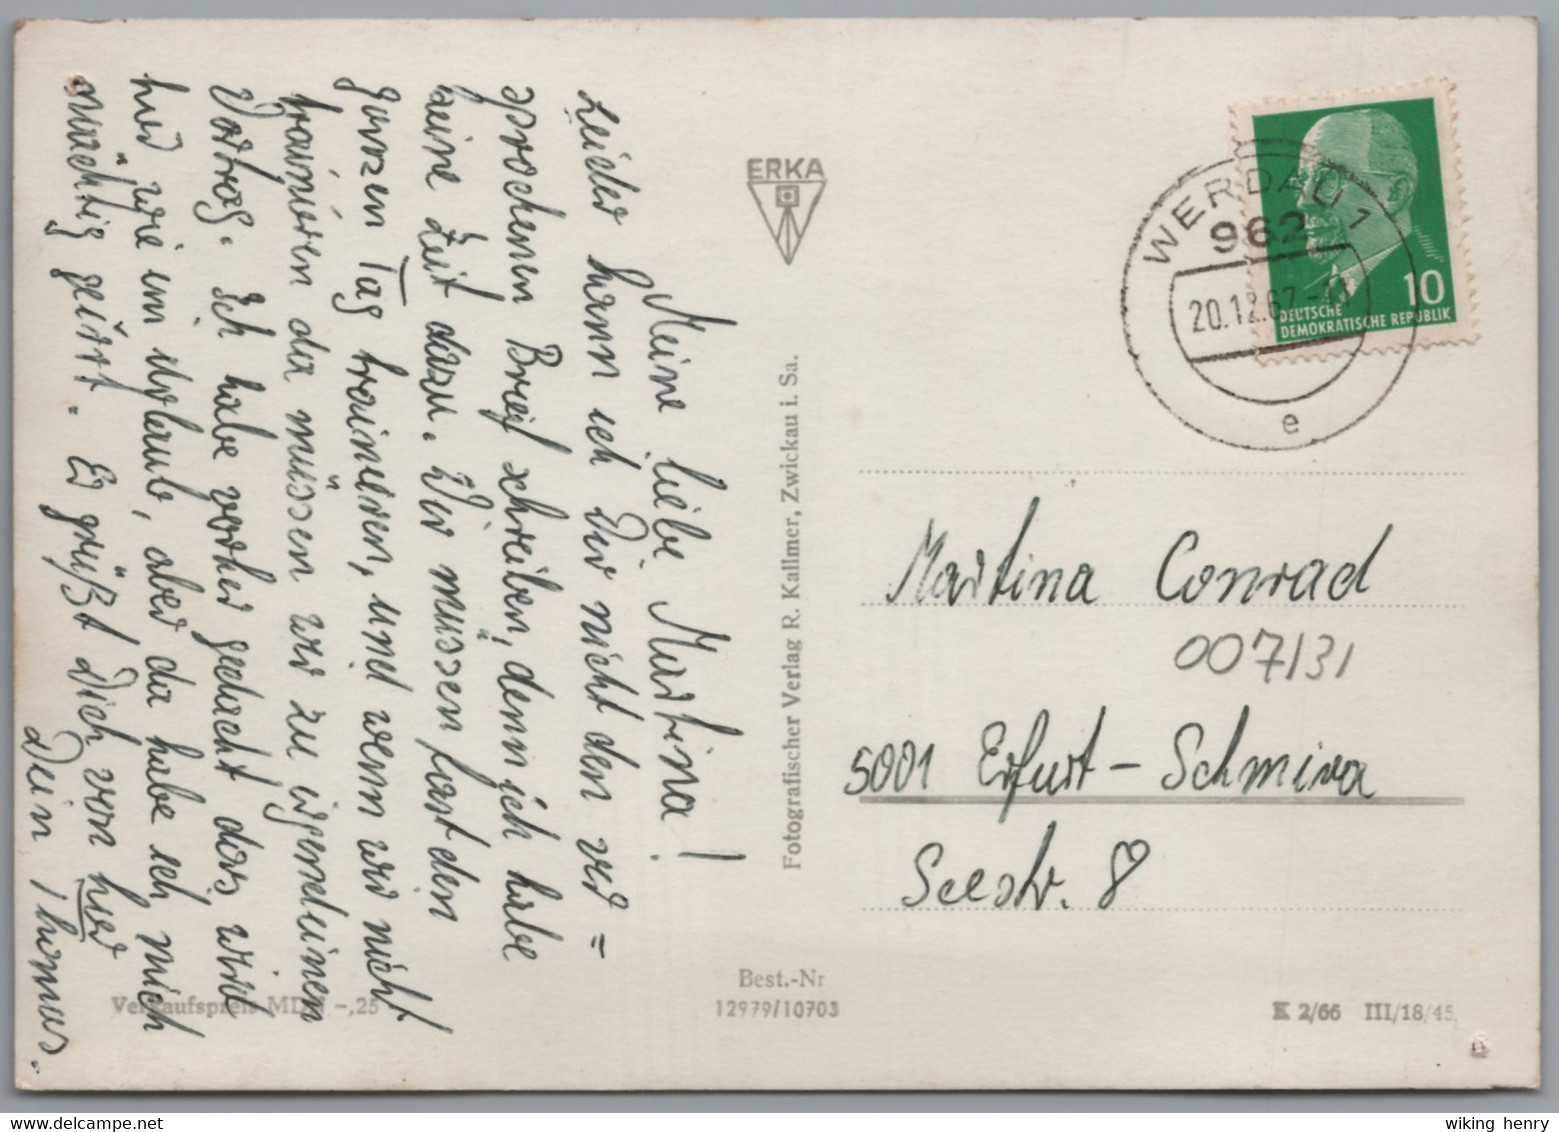 Meine liebe Martina!
Leider kann ich Dir nicht den ver=
sprochenen Brief schreiben, denn ich habe
keine Zeit dazu. Wir müssen fast den
ganzen Tag trainieren, und wenn wir nicht
trainieren da müssen wir zu irgendeinen
Vortrag. Ich habe vorher gedacht das wird
hier wie im Urlaub, aber da habe ich mich
mächtig geirrt. Es grüßt Dich von hier
Dein Thomas.
Verkaufspreis MDN -,25
ERKA
Fotografischer Verlag R. Kallmer, Zwickau i. Sa.
Best.-Nr
12979/10703
WERDAU 1
962
20.12.67
e
10
DEUTSCHE
DEMOKRATISCHE REPUBLIK
Martina Conrad
007/31
5001 Erfurt - Schmira
Seestr. 8
K 2/66 III/18/45
wiking henry